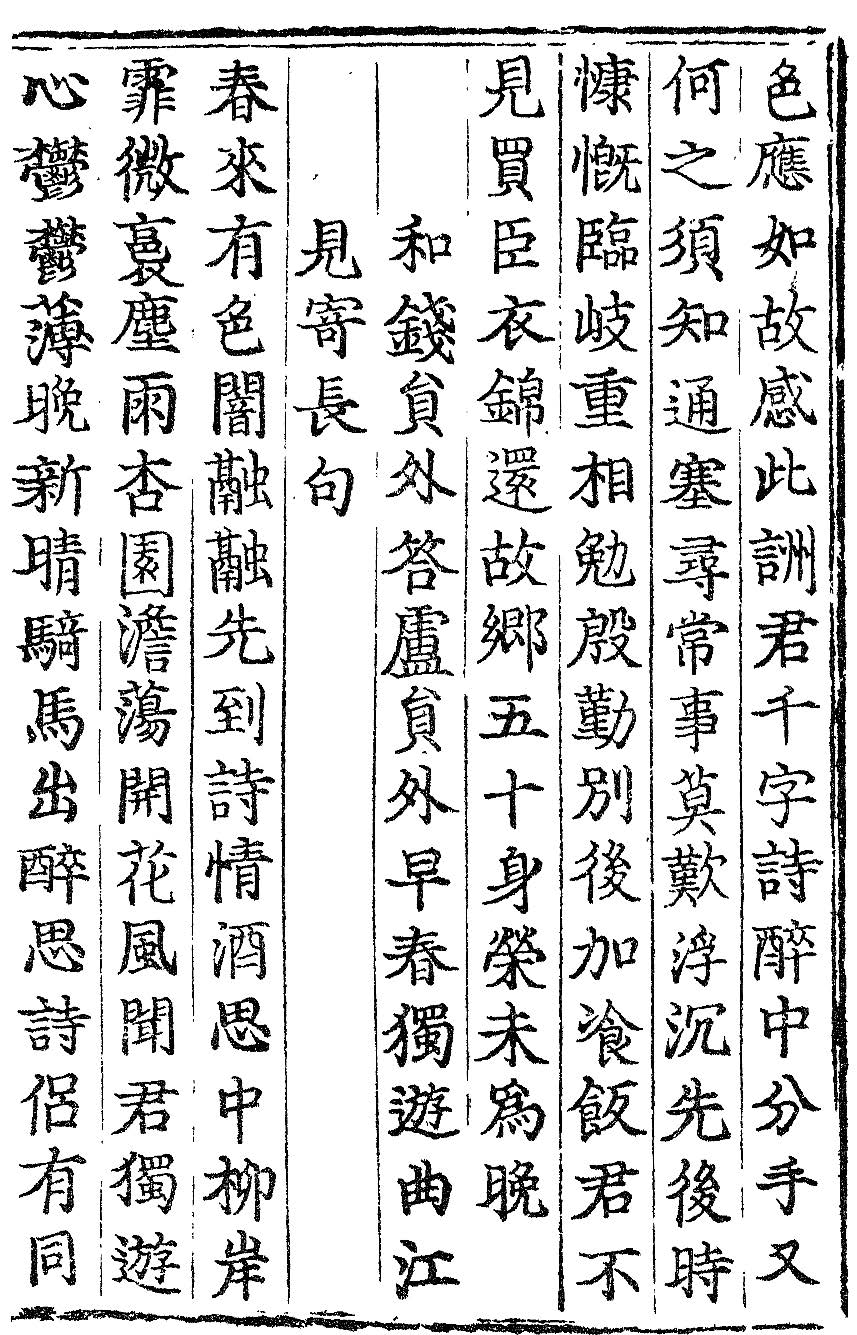 色應如故感此詶君千字詩醉中分手又
何之須知通塞尋常事莫歎浮沉先後時
慷慨臨岐重相勉殷勤別後加飡飯君不
見買臣衣錦還故鄉五十身榮未爲晚
和錢貟外答盧貟外早春獨遊曲江
見寄長句
春來有色闇融融先到詩情酒思中柳岸
霏微裛塵雨杏園澹蕩開花風聞君獨遊
心鬱鬱薄晚新晴騎馬出醉思詩侶有同